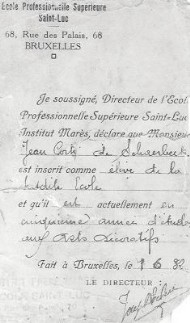 Ecole Professionnelle Supérieure
Saint-Luc
68, Rue des Palais, 68
BRUXELLES
Je soussigné, Directeur de l'Ecol
Professionnelle Supérieure Saint-Luc
Institut Marès, déclare que Monsieur
Jean de Schaerbeek
est inscrit comme élève de la
susdite Ecole
et qu'il est actuellement en
cinquième année d'étud
aux Arts Décoratifs
Fait à Bruxelles, le 1.6.32
LE DIRECTEUR